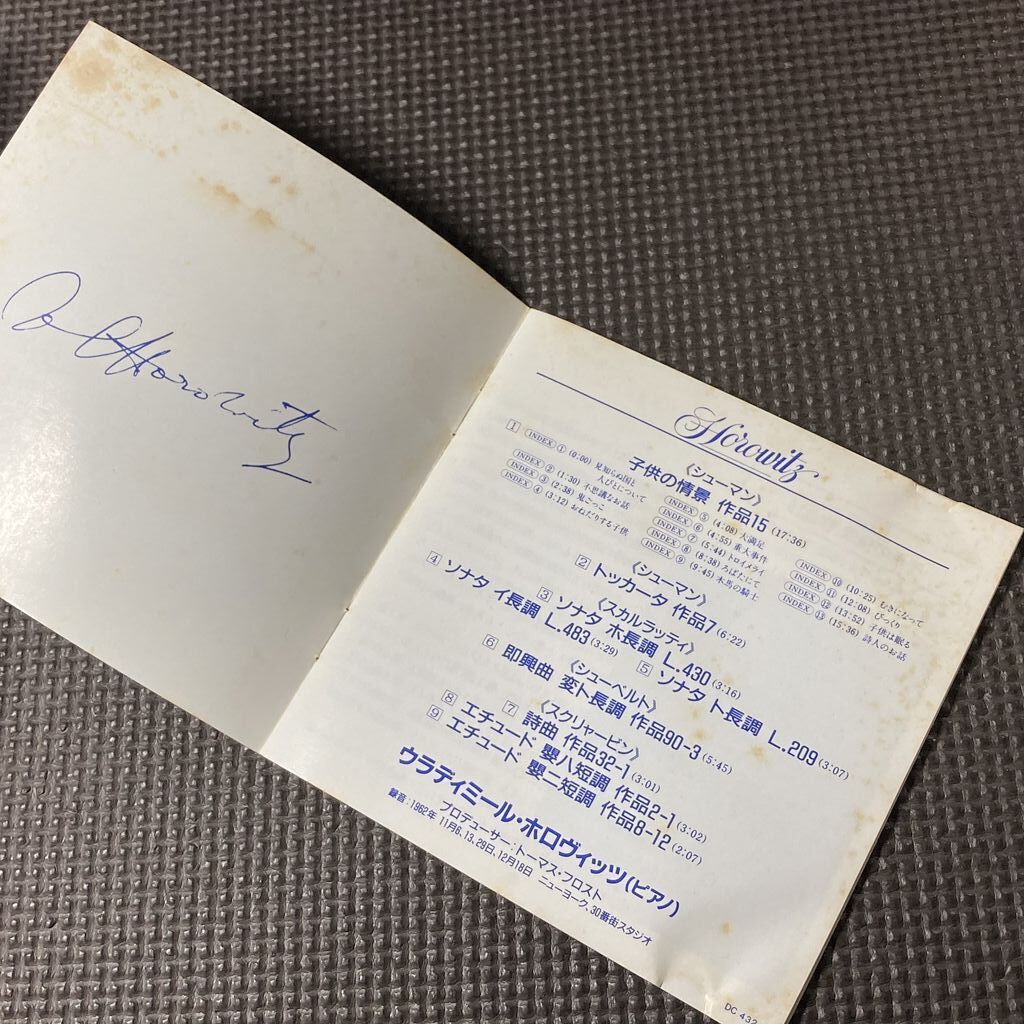 Horowitz
Horowitz
《シューマン》
子供の情景 作品15 (17:36)
1 INDEX 1 (0:00) 見知らぬ国と
人びとについて
INDEX 2 (1:30) 不思議なお話
INDEX 3 (2:38) 鬼ごっこ
INDEX 4 (3:12) おねだりする子供
INDEX 5 (4:08) 大満足
INDEX 6 (4:55) 重大事件
INDEX 7 (5:44) トロイメライ
INDEX 8 (8:38) ろばたにて
INDEX 9 (9:45) 木馬の騎士
INDEX 10 (10:25) むきになって
INDEX 11 (12:08) びっくり
INDEX 12 (13:52) 子供は眠る
INDEX 13 (15:36) 詩人のお話
《シューマン》
2 トッカータ 作品7 (6:22)
《スカルラッティ》
3 ソナタ ホ長調 L.430 (3:16)
4 ソナタ イ長調 L.483 (3:29) 5 ソナタ ト長調 L.209 (3:07)
《シューベルト》
6 即興曲 変ト長調 作品90-3 (5:45)
《スクリャービン》
7 詩曲 作品32-1 (3:01)
8 エチュード 嬰ハ短調 作品2-1 (3:02)
9 エチュード 嬰ニ短調 作品8-12 (2:07)
ウラディミール・ホロヴィッツ(ピアノ)
プロデューサー:トーマス・フロスト
録音:1962年 11月6、13、29日、12月18日 ニューヨーク、30番街スタジオ
DC 432